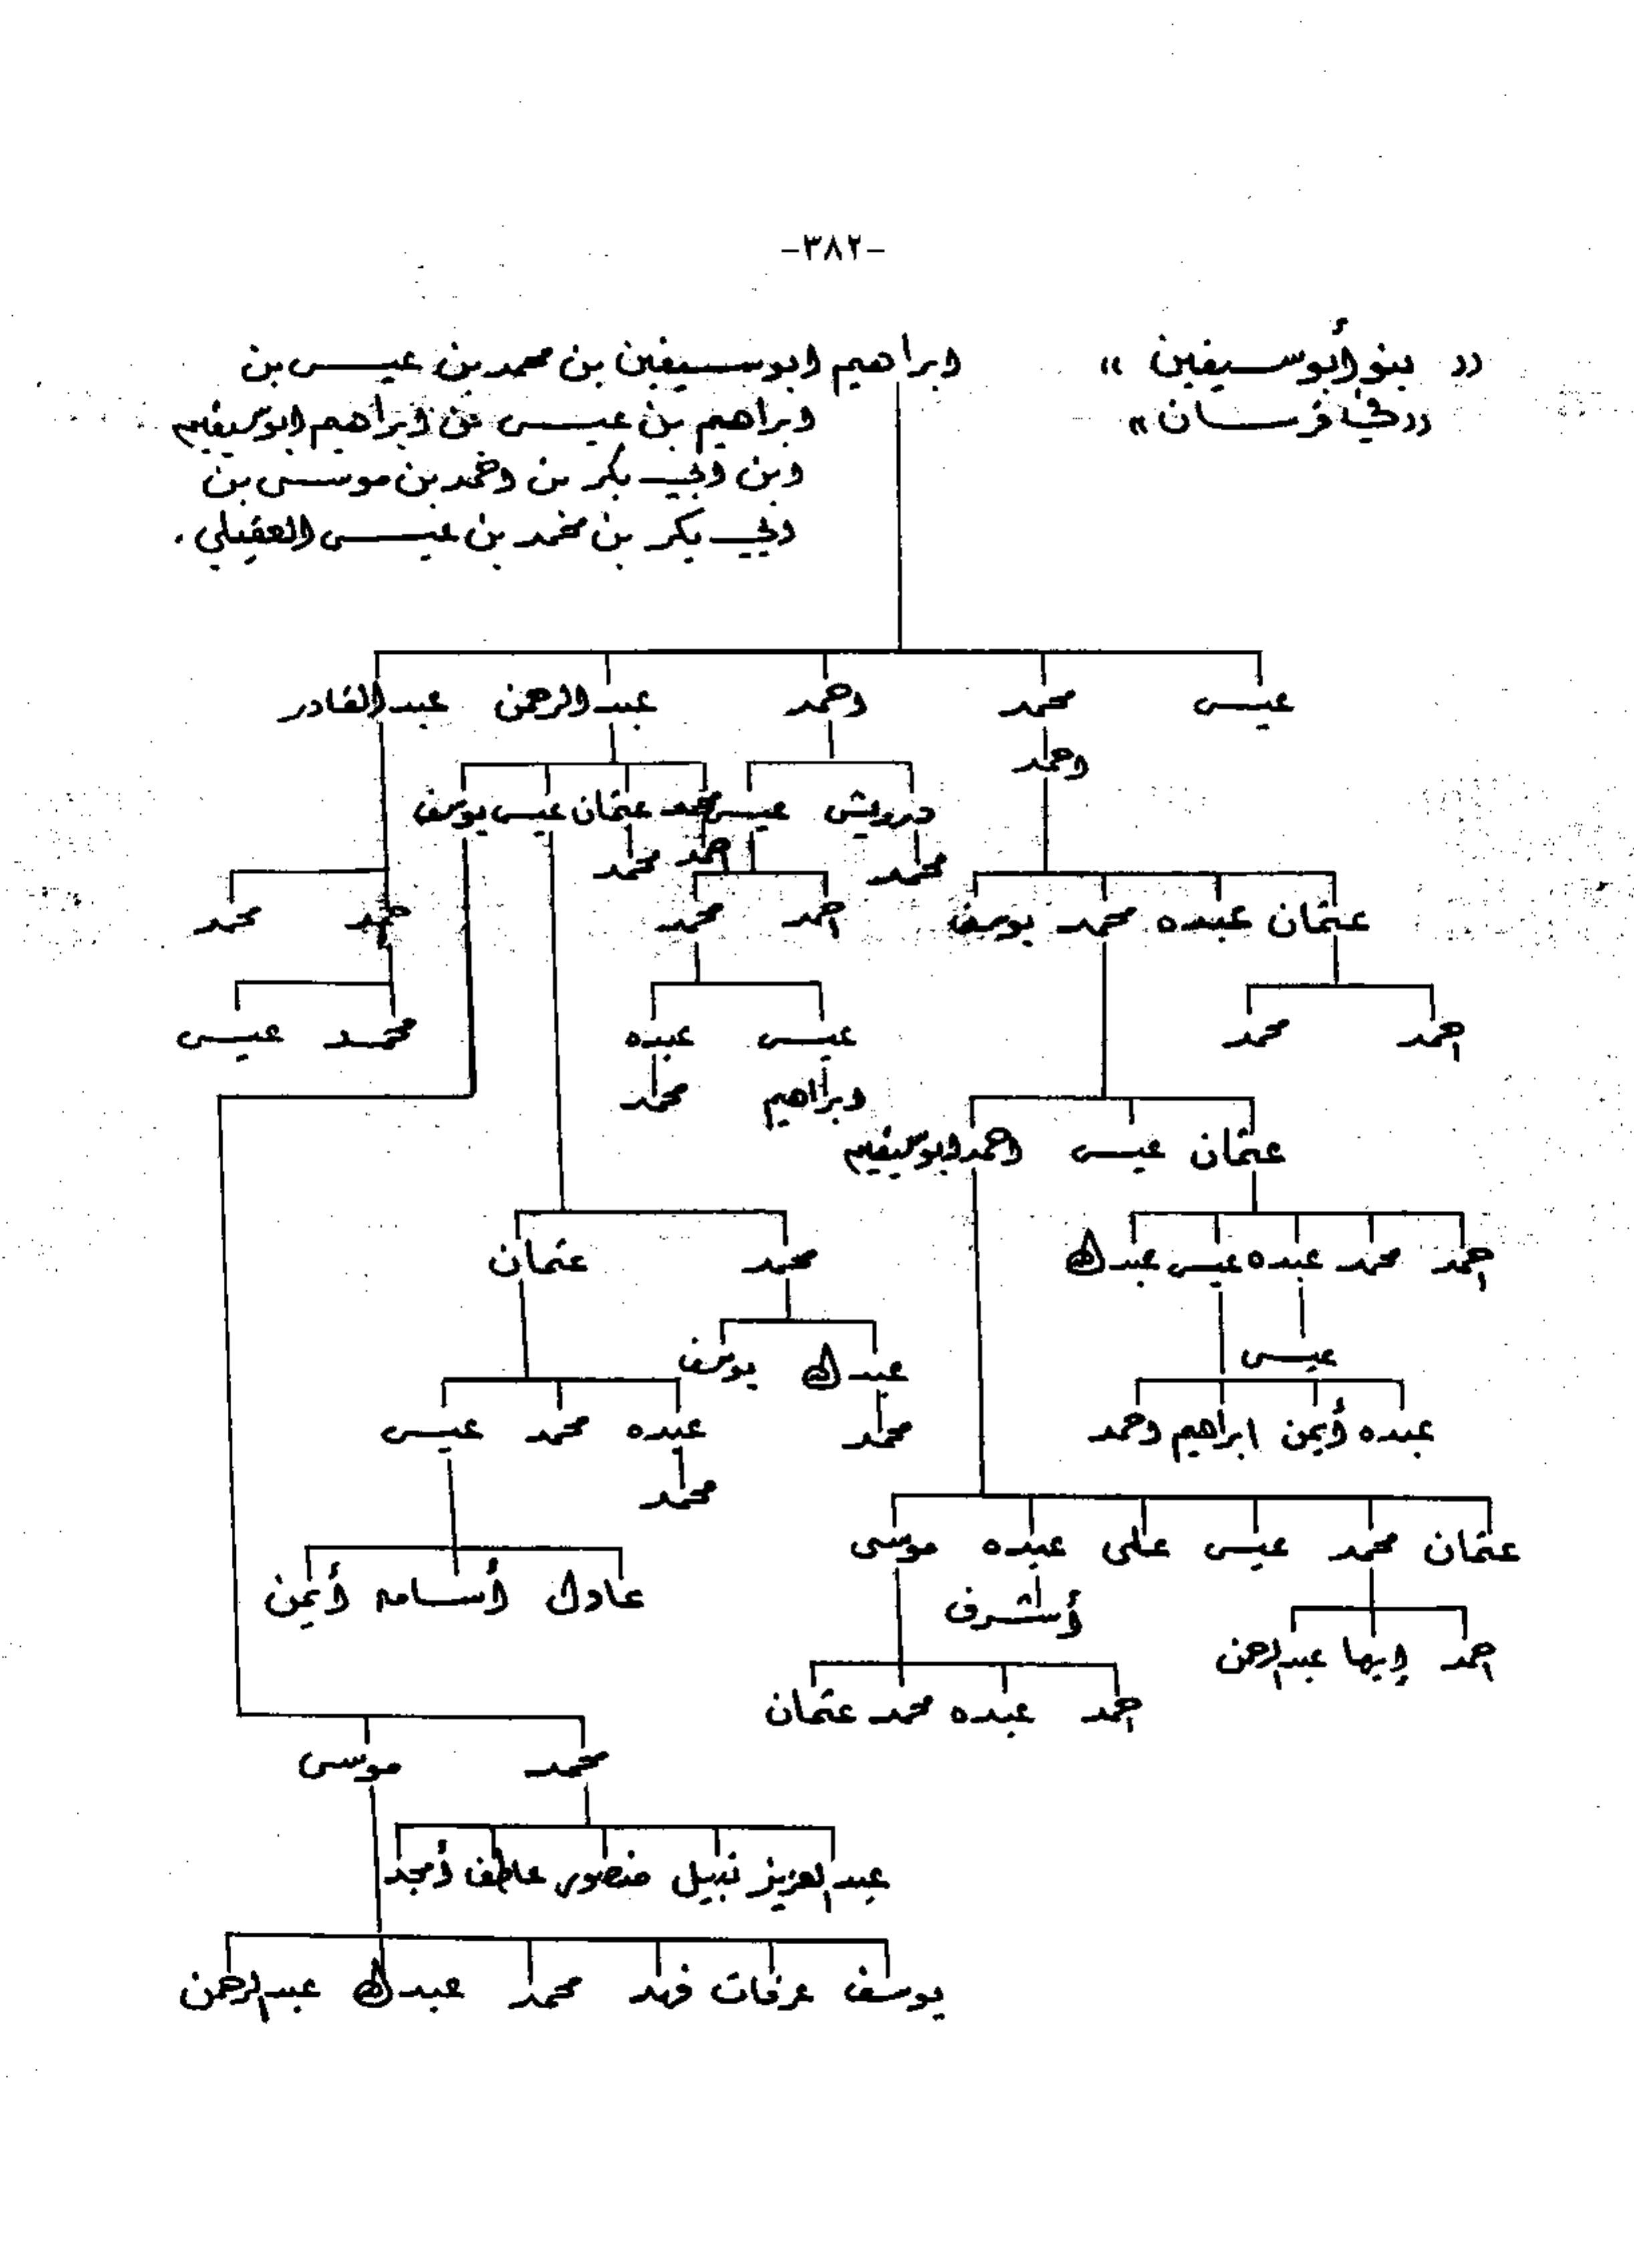 -٣٨٢-
(( بنو أبو سيفين ))
((في فرسان))
ابراهيم ابوسيفين بن محمد بن عيسى بن
ابراهيم بن عيسى بن ابراهيم ابوسيفين
ابن ابي بكر بن احمد بن موسى بن
ابي بكر بن محمد بن عيسى العقيلي .
عيسى محمد احمد عبدالرحمن عبدالقادر
احمد
درويش عيسى محمد عثمان عيسى يوسف
محمد احمد محمد
عثمان عبده محمد يوسف احمد محمد احمد محمد
احمد محمد عيسى عبده محمد عيسى
ابراهيم محمد
عثمان عيسى احمد ابوسيفين
احمد محمد عبده عيسى عبدالله محمد عثمان
عيسى عبدالله يوسف
عبده أيمن ابراهيم احمد محمد عبده محمد عيسى
محمد
عثمان محمد عيسى على عبده موسى
أشرف عادل أسامه أيمن
احمد إيها عبدالرحمن
احمد عبده محمد عثمان
محمد موسى
عبدالعزيز نبيل منصور عاطف أمجد
يوسف عرفات فهد محمد عبدالله عبدالرحمن